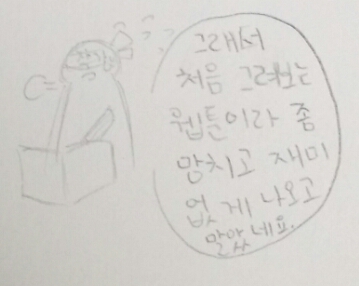 그래서
처음 그려보는
웹툰이라 좀
망치고 재미
없게 나오고
말았네요.